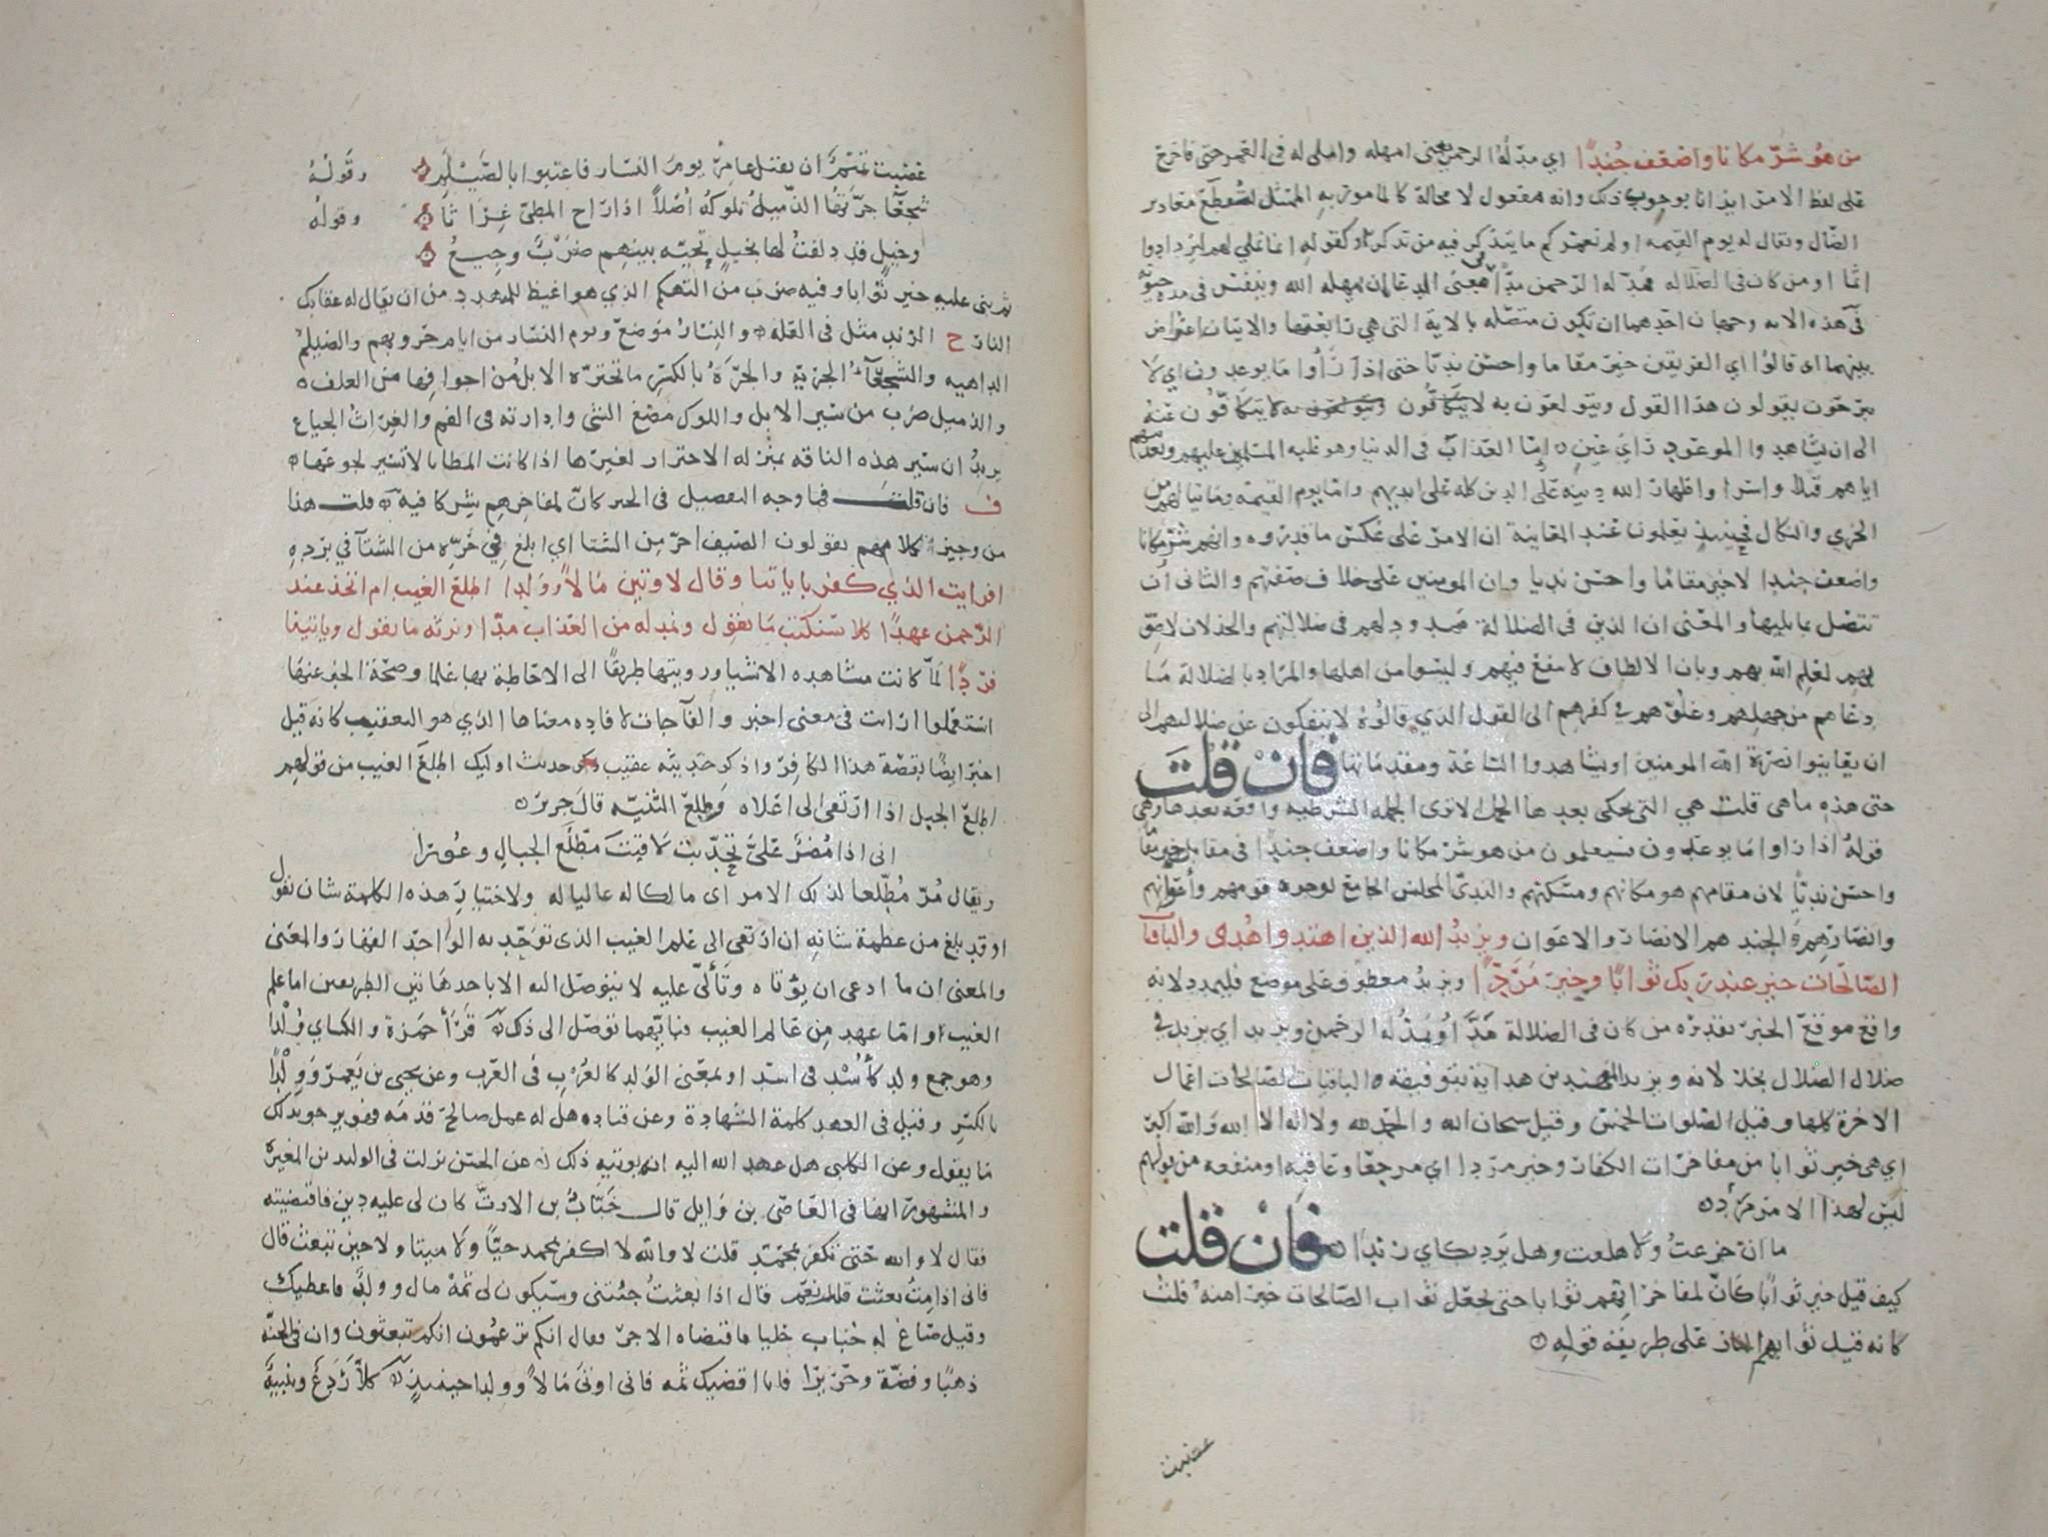 من هو شرّ مكانا واضعف جندًا اي مدّ له الرحمن يعنى امهله واملى له في العمر حتى فاخرج
على لفظ الامر ايذانا بوجوب ذلك وانه مفعول لا محالة كالمامور به الممتثل لتقطع معاذير
الضال ويقال له يوم القيمه اولم نعمركم ما يتذكر فيه من تذكر او كقوله انما نملي لهم ليزدادوا
اثما او من كان في الضلاله فليمدد له الرحمن مدّا في معنى الدعا بان يمهله الله وينفس في مدة حيوته
في هذه الايه وجهان احدهما ان تكون متصله بالاية التي هي رابعتها والايتان اعتراض
بينهما اى قالوا اي الفريقين خير مقاما واحسن نديّا حتى اذا رأوا ما يوعدون اي لا
يبرحون يقولون هذا القول ويتولعون به لا يتكافون عنه
الى ان يشاهدوا الموعود راي عين اما العذاب في الدنيا وهو غلبه المسلمين عليهم وتعذيبهم
اياهم قتلا واسرا واظهار الله دينه على الدين كله على ايديهم واما يوم القيمه وما ينالهم من
الخزي والنكال فحينئذ يعلمون عند المعاينة ان الامر على عكس ما قدروه وانهم شرّ مكانا
واضعف جندا لا خير مقاما واحسن نديا وان المومنين على خلاف صفتهم والثاني أن
تتصل بما يليها والمعنى ان الذين في الضلالة ممدود لهم في ضلالتهم والخذلان لاصق
بهم لعلم الله بهم وبان الالطاف لا تنفع فيهم وليسوا من اهلها والمراد بالضلالة ما
دعاهم من جهلهم وغلوّهم في كفرهم الى القول الذي قالوه لا ينفكون عن ضلالتهم الى
ان يعاينوا نصرة الله المومنين او يشاهدوا الساعة ومقدماتها فان قلت
حتى هذه ما هى قلت هي التى يحكى بعدها الجمل الا ترى الجمله الشرطيه واقعه بعدها وهي
قوله اذا راوا ما يوعدون فسيعلمون من هو شر مكانا واضعف جندًا في مقابله خير مقاما
واحسن نديّا لان مقامهم هو مكانهم ومسكنهم والنديّ المجلس الجامع لوجوه قومهم وأعوانهم
وانصارهم والجند هم الانصار والاعوان ويزيد الله الذين اهتدوا هدى والباقيات
الصالحات خير عند ربك ثوابًا وخير مردًّا ويزيد معطوف على موضع فليمدد لانه
واقع موقع الخبر تقديره من كان في الضلالة مدّ او يمدّ له الرحمن ويزيد اي يزيد في
ضلال الضلال بخذلانه ويزيد المهتدين هداية بتوفيقه والباقيات الصالحات اعمال
الاخرة كلها وقيل الصلوات الخمس وقيل سبحان الله والحمد لله ولا اله الا الله والله اكبر
اي هى خير ثوابا من مفاخرات الكفار وخير مردا اي مرجعا وعاقبه او منفعه من قولهم
ليس لهذا الامر مردّ
ما ان جزعتُ ولا هلعت وهل يَردّ بكاي زندا فان قلت
كيف قيل خير ثوابًا كانّ لمفاخراتهم ثوابا حتى يجعل ثواب الصالحات خيرا منه قلت
كانه قيل ثوابهم النار على طريقة قوله
غضبت تميم ان يقتل عامر يوم النسار فاعتبوا بالصَّيْلَمِ وقوله
شجعآ جرّتها الذميل تلوكه أصلاً اذا راح المطيّ غِراثا وقوله
وخيلٍ قد دلفتُ لها بخيلٍ تحيّه بينهم ضربٌ وجيعُ
ثم بنى عليه خير ثوابا وفيه ضرب من التهكم الذي هو اغيظ للمتهدد من ان يقال له عقابك
النار ح الزند مثل فى القله والنسار موضع ويوم النسار من ايام حروبهم والصيلم
الداهيه والشجعآء الجريّة والجرّة بالكسر ما تجتره الابل من اجوافها من العلف
والذميل ضرب من سير الابل واللوك مضغ الشى وادارته في الفم والغراث الجياع
يريد ان سير هذه الناقه بمنزله الاجترار لغيرها اذا كانت المطايا لا تسير لجوعها
ف فان قلت فما وجه التفضيل في الخبر كانّ لمفاخرهم شركا فيه قلت هذا
من وجيز كلامهم يقولون الصيف احرّ من الشتا اي ابلغ في حرّه من الشتآ في برده
افرايت الذي كفر باياتنا وقال لاوتين مالاً وولدا اطلع الغيب ام اتخذ عند
الرّحمن عهدًا كلا سنكتب ما يقول ونمد له من العذاب مدّا ونرثه ما يقول وياتينا
فردًا لمّا كانت مشاهده الاشيا ورويتها طريقًا الى الاحاطة بها علما وصحّة الخبر عنها
استعملوا ارايت فى معنى اخبر والفآ جات لافاده معناها الذي هو التعقيب كانه قيل
اخبر ايضًا بقصّة هذا الكافر واذكر حديثه عقيب حديث اوليك اطلع الغيب من قولهم
اطلعّ الجبل اذا ارتقى الى اعلاه وطلع الثنيّه قال جرير
اني اذا مُضَرٌ علىّ تحدّبت لاقيت مطّلع الجبال وعورا
ويقال مُرّ مُطّلعا لذلك الامر اى مالكا له عاليا له ولاختيار هذه الكلمة شان نقول
اوقد بلغ من عظمة شانه ان ارتقى الى علم الغيب الذي توحّد به الواحد القهار والمعنى
والمعنى ان ما ادعى ان يؤتاه وتألّى عليه لا يتوصل اليه الا باحد هاذين الطريقين اما علم
الغيب واما عهد من عالم الغيب فبايهما توصّل الى ذلك قرأ حمزة والكساي وُلْدا
وهو جمع ولد كأُسْد فى اسد او بمعنى الولد كالعُرْب في العَرب وعن يحيى بن يعمر وَوِلْدًا
بالكسر وقيل في العهد كلمة الشهادة وعن قتاده هل له عمل صالح قدمه فهو يرجو بذلك
ما يقول وعن الكلبي هل عهد الله اليه انه يوتيه ذلك عن الحسن نزلت فى الوليد بن المغيره
والمشهور انها في العاصى بن وايل قال خبّاب بن الارتّ كان لى عليه دين فاقتضيته
فقال لا والله حتى تكفر بمحمّد قلت لا والله لا اكفر بمحمد حيّا ولا ميتا ولا حين تبعث قال
فاني اذا متّ بعثت قلت نعم قال اذا بعثتُ جئتنى وسيكون لى ثمّه مال وولد فاعطيك
وقيل صاغ له خباب حليا فاقتضاه الاجر فقال انكم تزعمون انكم تبعثون وان في الجنّه
ذهبًا وفضّة وحريرًا فانا اقضيك ثمه فانى اوتى مالاً وولدا حينئذٍ كلاّ ردع وتنبيه